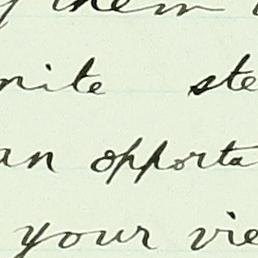 y them
nite ste
an opporta
your vie